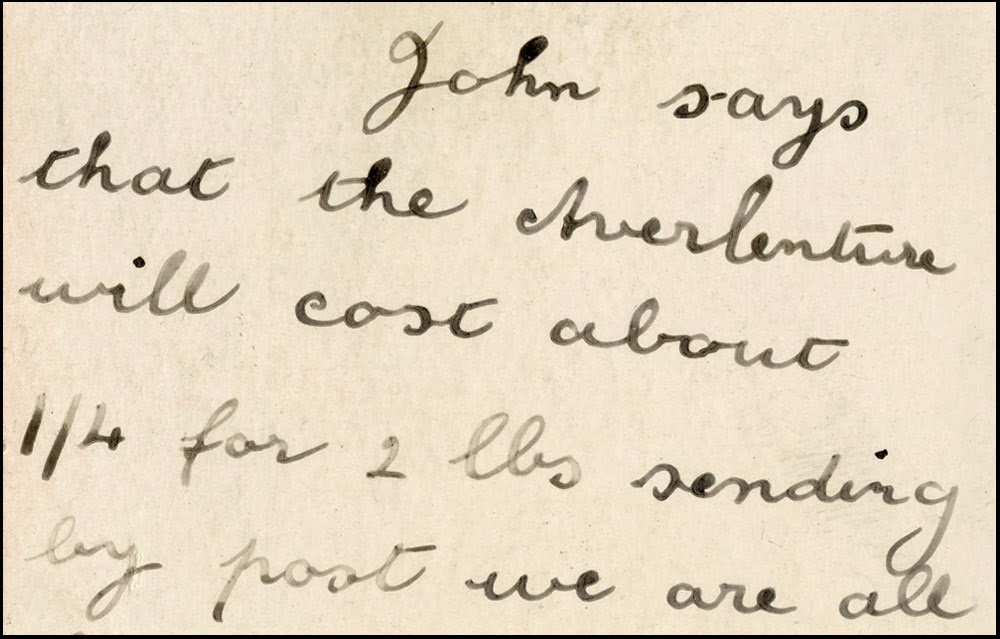 John says
that the Averlenture
will cost about
1/4 for 2 lbs sending
by post we are all